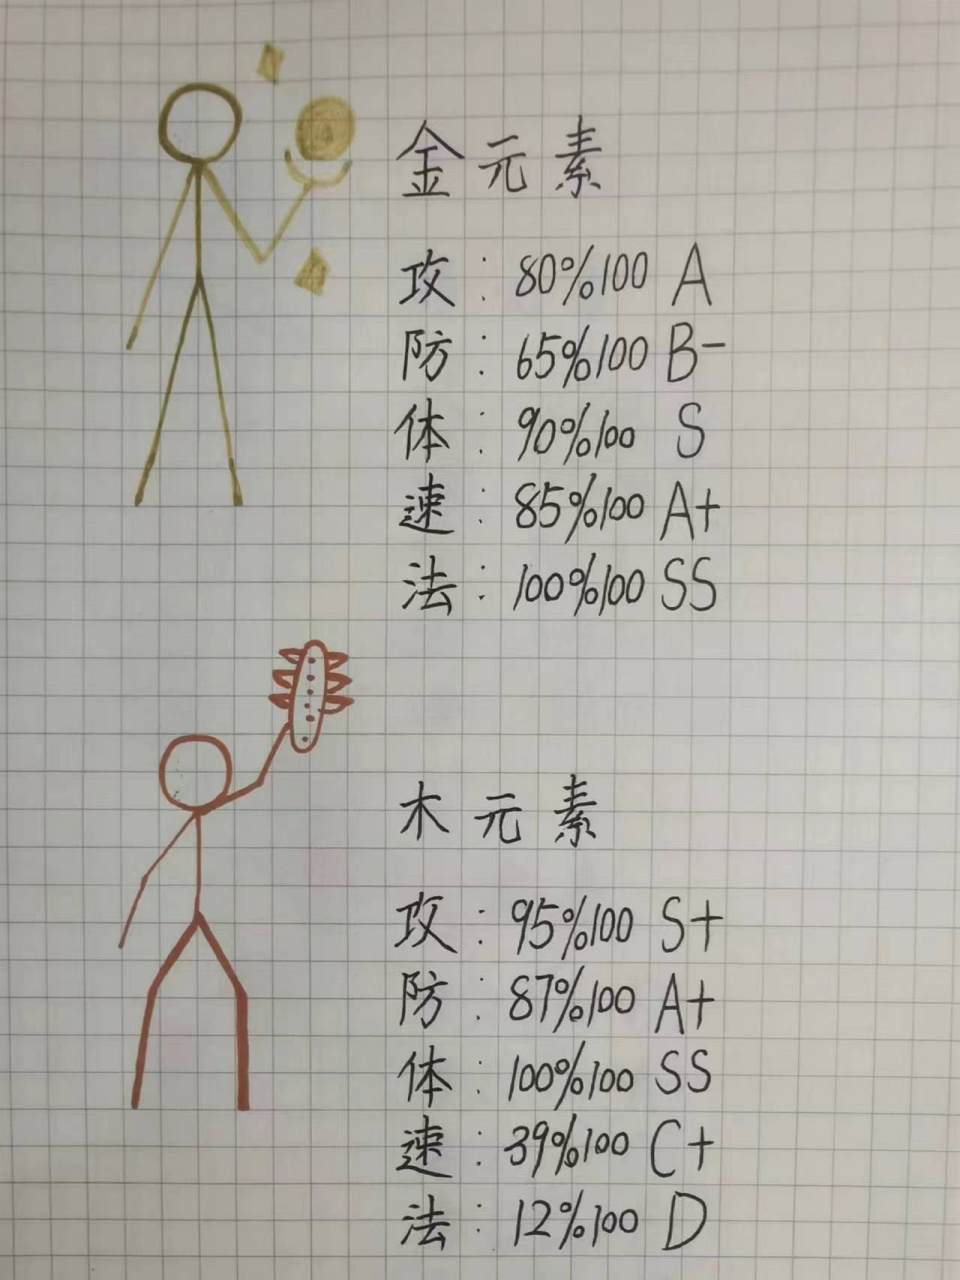 金元素
攻：80%100 A
防：65%100 B-
体：90%100 S
速：85%100 A+
法：100%100 SS
木元素
攻：95%100 S+
防：87%100 A+
体：100%100 SS
速：39%100 C+
法：12%100 D